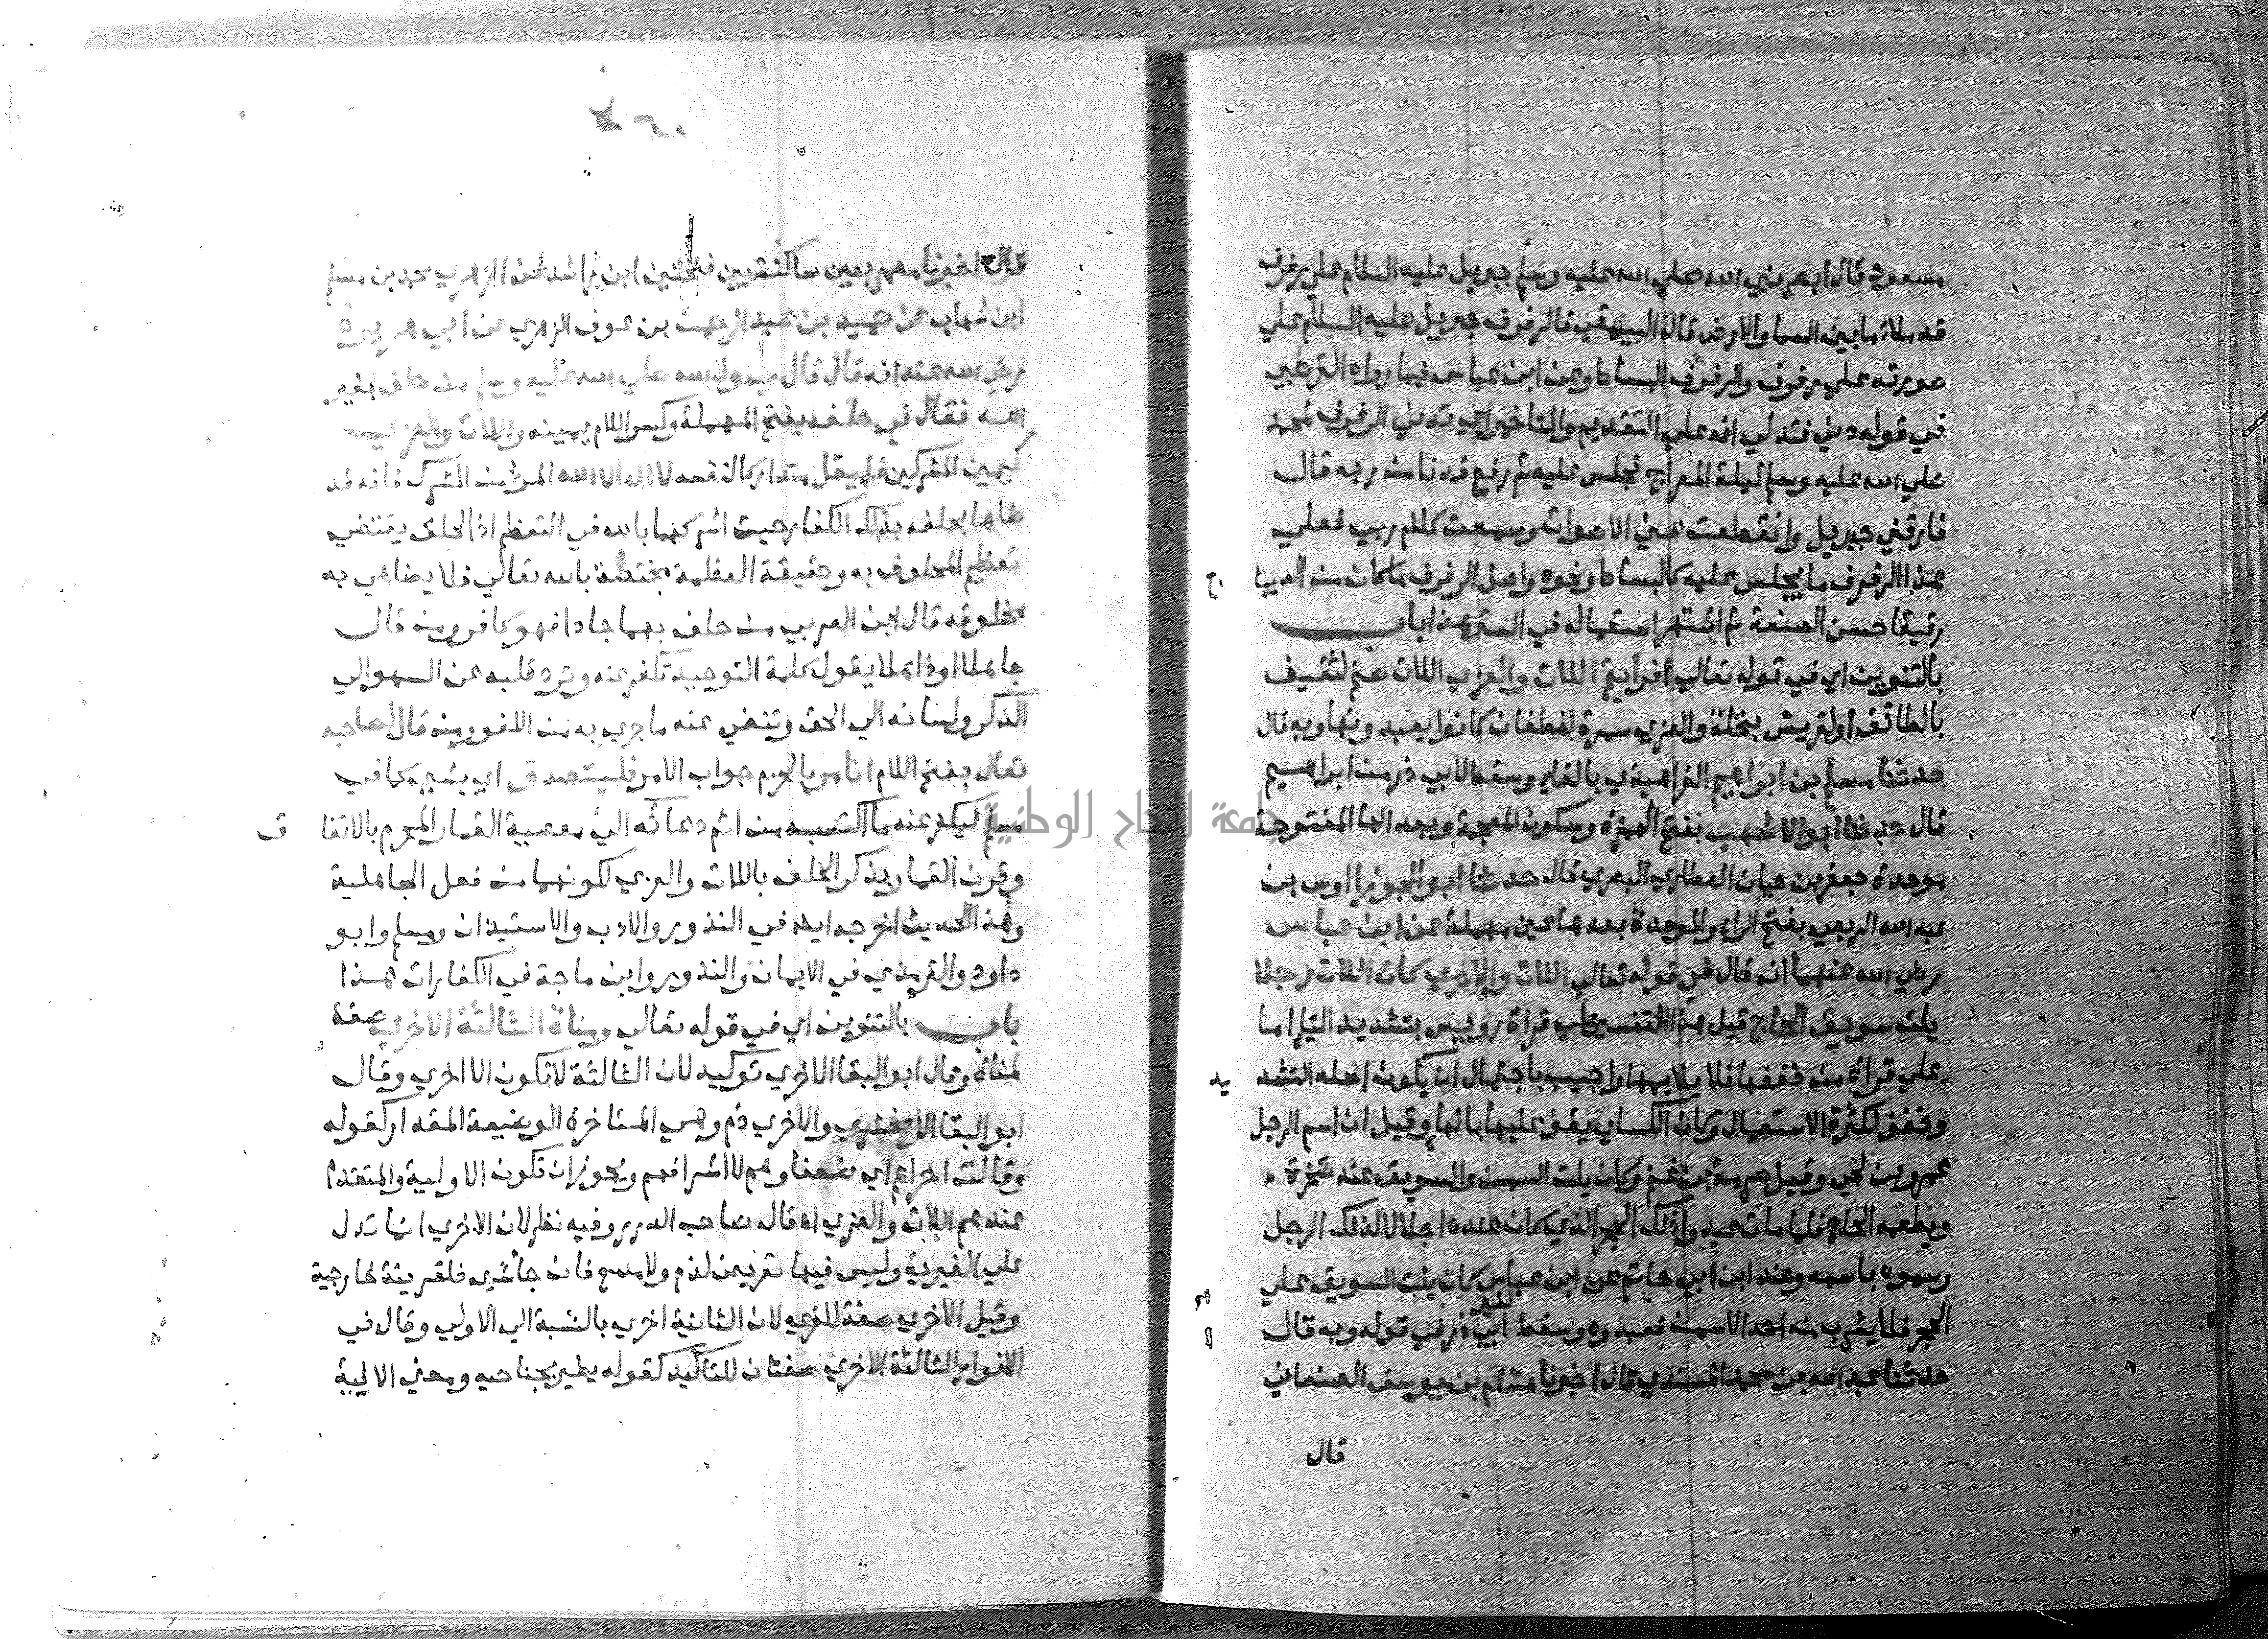 مسعود قال ابصر نبي الله صلي الله عليه وسلم جبريل عليه السلام علي رفرف
قد ملا ما بين السما والارض قال البيهقي فالرفرف جبريل عليه السلام علي
صورته علي رفرف والرفرف البساط وعن ابن عباس فيما رواه القرطبي
في قوله دني فتدلي انه علي التقديم والتاخير اي تدلي الرفرف لمحمد
صلي الله عليه وسلم ليلة المعراج فجلس عليه ثم رفع فدنا من ربه قال
فارقني جبريل وانقطعت عني الاصوات وسمعت كلام ربي فعلي
هذا الرفرف ما يجلس عليه كالبساط ونحوه واصل الرفرف ما كان من الديبا ج
رقيقا حسن الصنعة ثم اشتهر استعماله في الستر هذا باب
بالتنوين اي في قوله تعالي افرايتم اللات والعزي اللات صنم لثقيف
بالطائف او لقريش بنخلة والعزي سمرة لغطفان كانوا يعبدونها وبه قال
حدثنا مسلم بن ابراهيم الفراهيدي بالفاء وسقط لابي ذر بن ابراهيم
قال حدثنا ابو الاشهب بفتح الهمزة وسكون المعجمة وبعد الها المفتوحة
موحدة جعفر بن حيان العطاردي البصري قال حدثنا ابو الجوزا اوس بن
عبد الله الربعي بفتح الراء والموحدة بعدها عين مهملة عن ابن عباس
رضي الله عنهما انه قال في قوله تعالي اللات والاخري كان اللات رجلا
يلت سويق الحاج قيل هذا التفسير علي قراة رويس بتشديد التا اما
علي قراة من خففها فلا يلايمها واجيب باحتمال ان يكون اصله التشد يد
وخفف لكثرة الاستعمال وكان الكساي يقف عليها بالهاء وقيل ان اسم الرجل
عمرو بن لحي وقيل صرمة بن غنم وكان يلت السمن والسويق عند صخرة
ويطعمه الحاج فلما مات عبدوا ذلك الحجر الذي كان عنده اجلالا لذلك الرجل
وسموه باسمه وعند ابن ابي حاتم عن ابن عباس كان يلت السويق علي
الحجر فلا يشرب منه احد الا سمن فعبدوه وسقط لغير ابي ذر في قوله وبه قال
حدثنا عبد الله بن محمد المسندي قال اخبرنا هشام بن يوسف الصنعاني
قال
قال اخبرنا معمر بعين ساكنة بين فتحتين ابن راشد عن الزهري محمد بن مسلم
ابن شهاب عن حميد بن عبد الرحمن بن عوف الزهري عن ابي هريرة
رضي الله عنه انه قال قال رسول الله صلي الله عليه وسلم من حلف بغير
الله فقال في حلفه بفتح المهملة وكسر اللام يمينه واللات والعزي
كيمين المشركين فليقل متداركا لنفسه لا اله الا الله المبرا من الشرك فانه قد
ضاها بحلفه بذلك الكفار حيث اشركها بالله في التعظيم اذ الحلف يقتضي
تعظيم المحلوف به وحقيقة العظمة مختصة بالله تعالي فلا يضاهي به
مخلوقه قال ابن العربي من حلف بهما جادا فهو كافر ومن قال
جاهلا او ذاهلا يقول كلمة التوحيد تكفر عنه وترد قلبه عن السهو الي
الذكر ولسانه الي الحق وتنفي عنه ما جري به من اللغو ومن قال لصاحبه
تعال بفتح اللام اقامرك بالجزم جواب الامر فليتصدق اي بشي كما في
مسلم ليكفر عنه ما اكتسبه من اثم دعائه الي معصية القمار المحرم بالاتفا ق
وقرن القمار بذكر الحلف باللات والعزي لكونهما من فعل الجاهلية
وهذا الحديث اخرجه ايضا في النذور والادب والاستيذان ومسلم وابو
داود والترمذي في الايمان والنذور وابن ماجة في الكفارات هذا
باب بالتنوين اي في قوله تعالي ومناة الثالثة الاخري صفة
لمناة وقال ابو البقا الاخري توكيد لان الثالثة لا تكون الا اخري وقال
ابو البقا الزمخشري والاخري ذم وهي المتاخرة الوضيعة المقدار كقوله
وقالت اخراهم اي ضعفاوهم لاشرافهم ويجوز ان تكون الاولية والتقدم
عندهم اللات والعزي اه قال صاحب الدرر وفيه نظر لان الاخري انما تدل
علي الغيرية وليس فيها تعريض لذم ولا مدح فان جا شي فلقرينة خارجية
وقيل الاخري صفة للعزي لان الثانية اخري بالنسبة الي الاولي وقال في
الانوار الثالثة الاخري صفتان للتاكيد كقوله يطير بجناحيه ومعني الاية
جامعة النجاح الوطنية